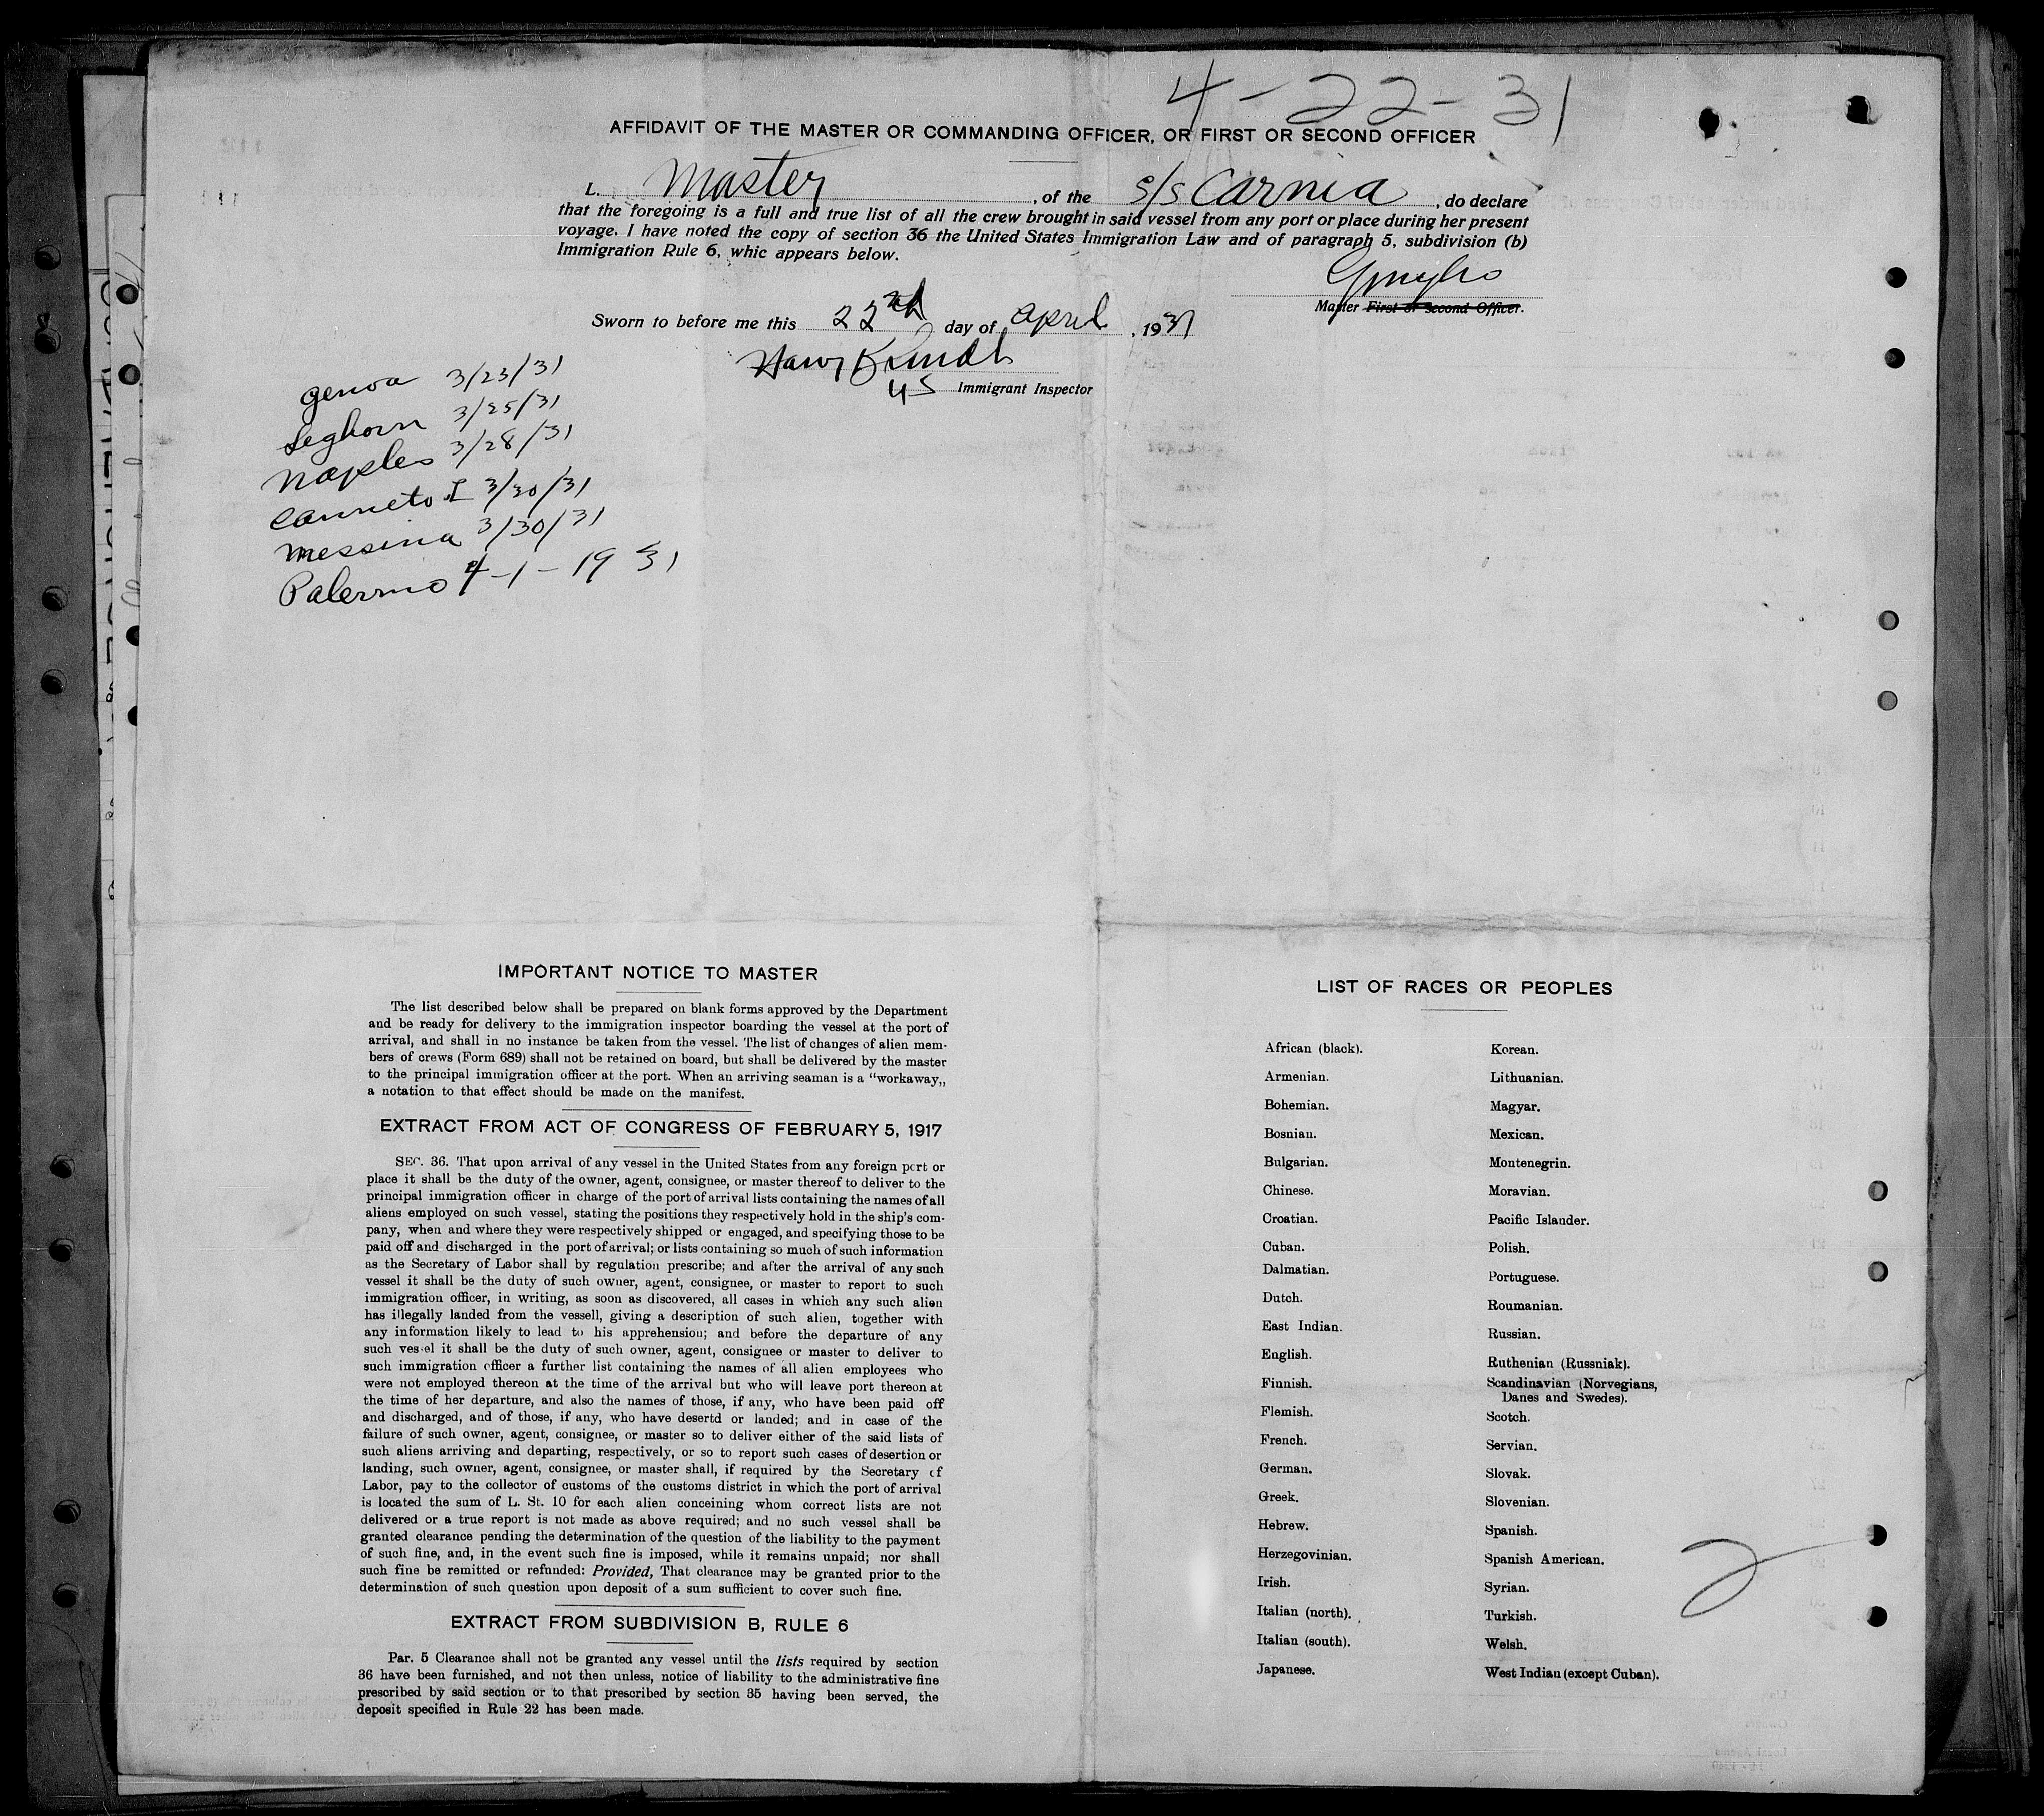 4-22-31
AFFIDAVIT OF THE MASTER OR COMMANDING OFFICER, OR FIRST OR SECOND OFFICER
I. Master, of the s/s Carnia, do declare
that the foregoing is a full and true list of all the crew brought in said vessel from any port or place during her present
voyage. I have noted the copy of section 36 the United States Immigration Law and of paragraph 5, subdivision (b)
Immigration Rule 6, whic appears below.
Master First or Second Officer.
Sworn to before me this 22nd day of april, 1931
US Immigrant Inspector
genoa 3/23/31
Leghorn 3/25/31
Naples 3/28/31
Canneto L 3/30/31
Messina 3/30/31
Palermo 4-1-1931
IMPORTANT NOTICE TO MASTER
The list described below shall be prepared on blank forms approved by the Department
and be ready for delivery to the immigration inspector boarding the vessel at the port of
arrival, and shall in no instance be taken from the vessel. The list of changes of alien mem-
bers of crews (Form 689) shall not be retained on board, but shall be delivered by the master
to the principal immigration officer at the port. When an arriving seaman is a “workaway„
a notation to that effect should be made on the manifest.
EXTRACT FROM ACT OF CONGRESS OF FEBRUARY 5, 1917
SEC. 36. That upon arrival of any vessel in the United States from any foreign port or
place it shall be the duty of the owner, agent, consignee, or master thereof to deliver to the
principal immigration officer in charge of the port of arrival lists containing the names of all
aliens employed on such vessel, stating the positions they respectively hold in the ship's com-
pany, when and where they were respectively shipped or engaged, and specifying those to be
paid off and discharged in the port of arrival; or lists containing so much of such information
as the Secretary of Labor shall by regulation prescribe; and after the arrival of any such
vessel it shall be the duty of such owner, agent, consignee, or master to report to such
immigration officer, in writing, as soon as discovered, all cases in which any such alien
has illegally landed from the vessell, giving a description of such alien, together with
any information likely to lead to his apprehension; and before the departure of any
such vessel it shall be the duty of such owner, agent, consignee or master to deliver to
such immigration officer a further list containing the names of all alien employees who
were not employed thereon at the time of the arrival but who will leave port thereon at
the time of her departure, and also the names of those, if any, who have been paid off
and discharged, and of those, if any, who have desertd or landed; and in case of the
failure of such owner, agent, consignee, or master so to deliver either of the said lists of
such aliens arriving and departing, respectively, or so to report such cases of desertion or
landing, such owner, agent, consignee, or master shall, if required by the Secretary of
Labor, pay to the collector of customs of the customs district in which the port of arrival
is located the sum of L. St. 10 for each alien conceining whom correct lists are not
delivered or a true report is not made as above required; and no such vessel shall be
granted clearance pending the determination of the question of the liability to the payment
of such fine, and, in the event such fine is imposed, while it remains unpaid; nor shall
such fine be remitted or refunded: Provided, That clearance may be granted prior to the
determination of such question upon deposit of a sum sufficient to cover such fine.
EXTRACT FROM SUBDIVISION B, RULE 6
Par. 5 Clearance shall not be granted any vessel until the lists required by section
36 have been furnished, and not then unless, notice of liability to the administrative fine
prescribed by said section or to that prescribed by section 35 having been served, the
deposit specified in Rule 22 has been made.
LIST OF RACES OR PEOPLES
African (black).
Armenian.
Bohemian.
Bosnian.
Bulgarian.
Chinese.
Croatian.
Cuban.
Dalmatian.
Dutch.
East Indian.
English.
Finnish.
Flemish.
French.
German.
Greek.
Hebrew.
Herzegovinian.
Irish.
Italian (north).
Italian (south).
Japanese.
Korean.
Lithuanian.
Magyar.
Mexican.
Montenegrin.
Moravian.
Pacific Islander.
Polish.
Portuguese.
Roumanian.
Russian.
Ruthenian (Russniak).
Scandinavian (Norvegians,
Danes and Swedes).
Scotch.
Servian.
Slovak.
Slovenian.
Spanish.
Spanish American.
Syrian.
Turkish.
Welsh.
West Indian (except Cuban).
2